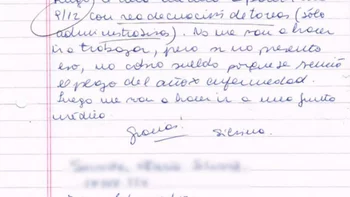 9/12 con readecuación de tareas (sólo
administrativas). No me van a hacer
ir a trabajar, pero si no presento
eso, no cobro sueldo porque se venció
el plazo del año x enfermedad.
Luego me van a hacer ir a una junta
médica.
Gracias! Silvina